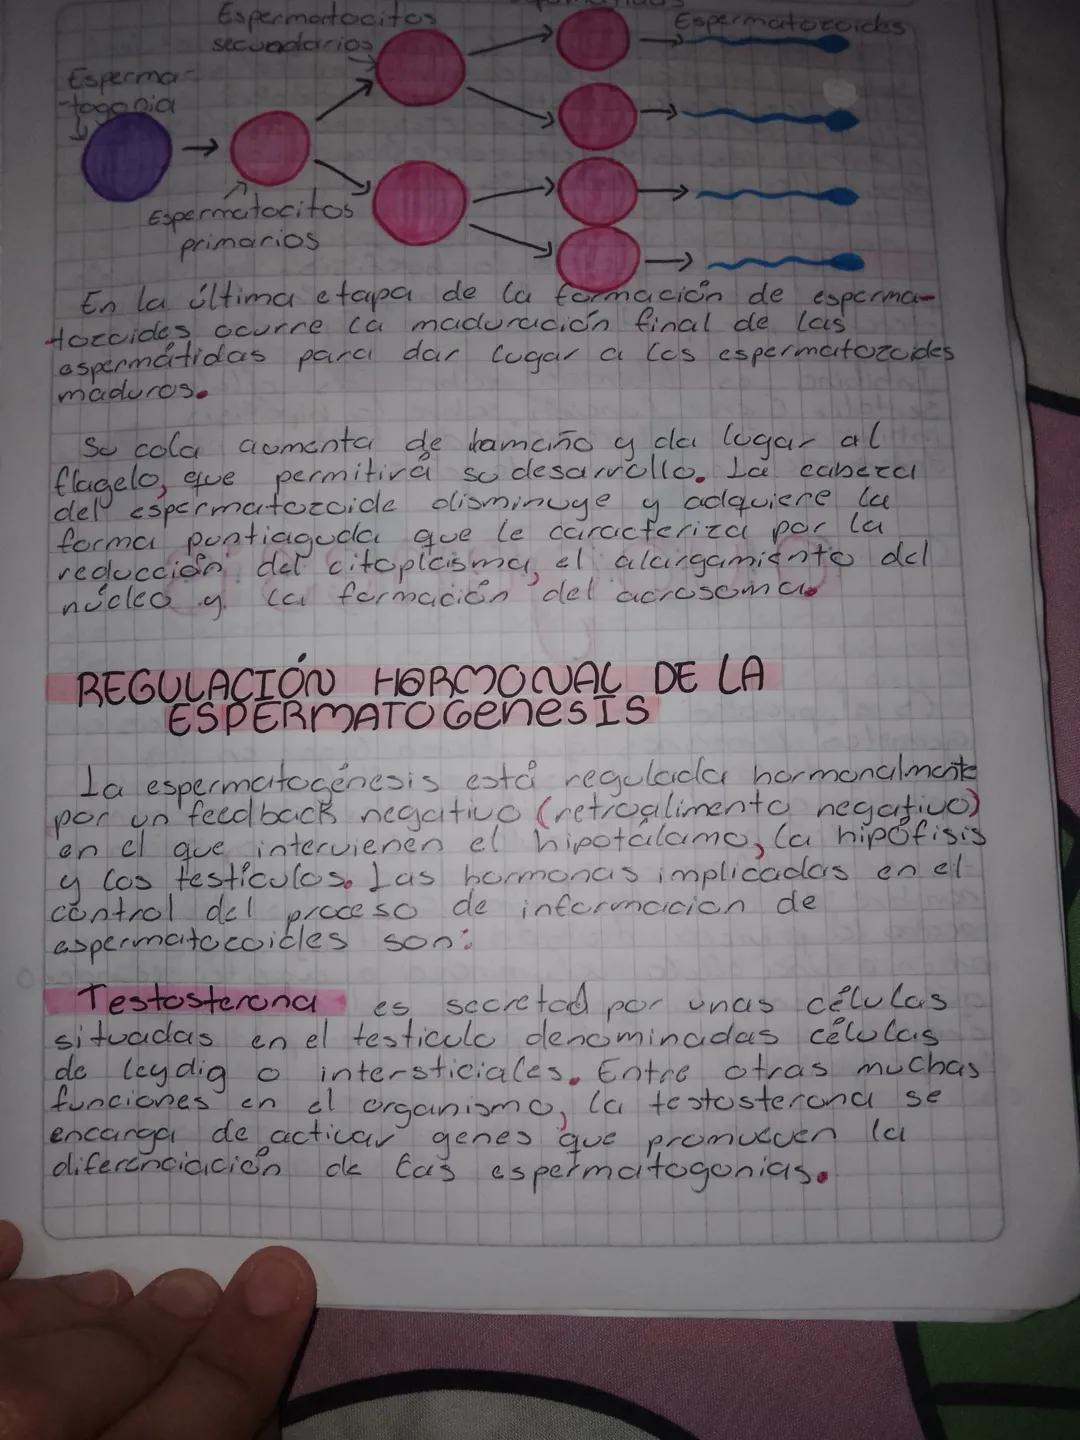 Espermatocitos
secundarios
Espermatozoides
Esperma-
-togonia
Espermatocitos
primarios
En la última etapa de la formación de esperma-
tozoides ocurre la maduración final de las
espermátidas para dar lugar a los espermatozoides
maduros.
Su cola aumenta de tamaño y da lugar al
flagelo, que permitirá su desarrollo. La cabeza
del espermatozoide disminuye y adquiere la
forma puntiaguda que le caracteriza por la
reducción del citoplasma, el alargamiento del
núcleo y la formación del acrosoma.
REGULACIÓN HORMONAL DE LA
ESPERMATOGENESIS
La espermatogénesis está regulada hormonalmente
por un feedback negativo (retroalimento negativo)
en el que intervienen el hipotálamo, la hipófisis
y los testículos. Las hormonas implicadas en el
control del proceso de informacion de
espermatozoides son:
Testosterona es secretad por unas células
situadas en el testiculo denominadas células
de leydig o intersticiales. Entre otras muchas
funciones en el organismo, la testosterona se
encarga de activar genes que promueven la
diferenciación de las espermatogonias.